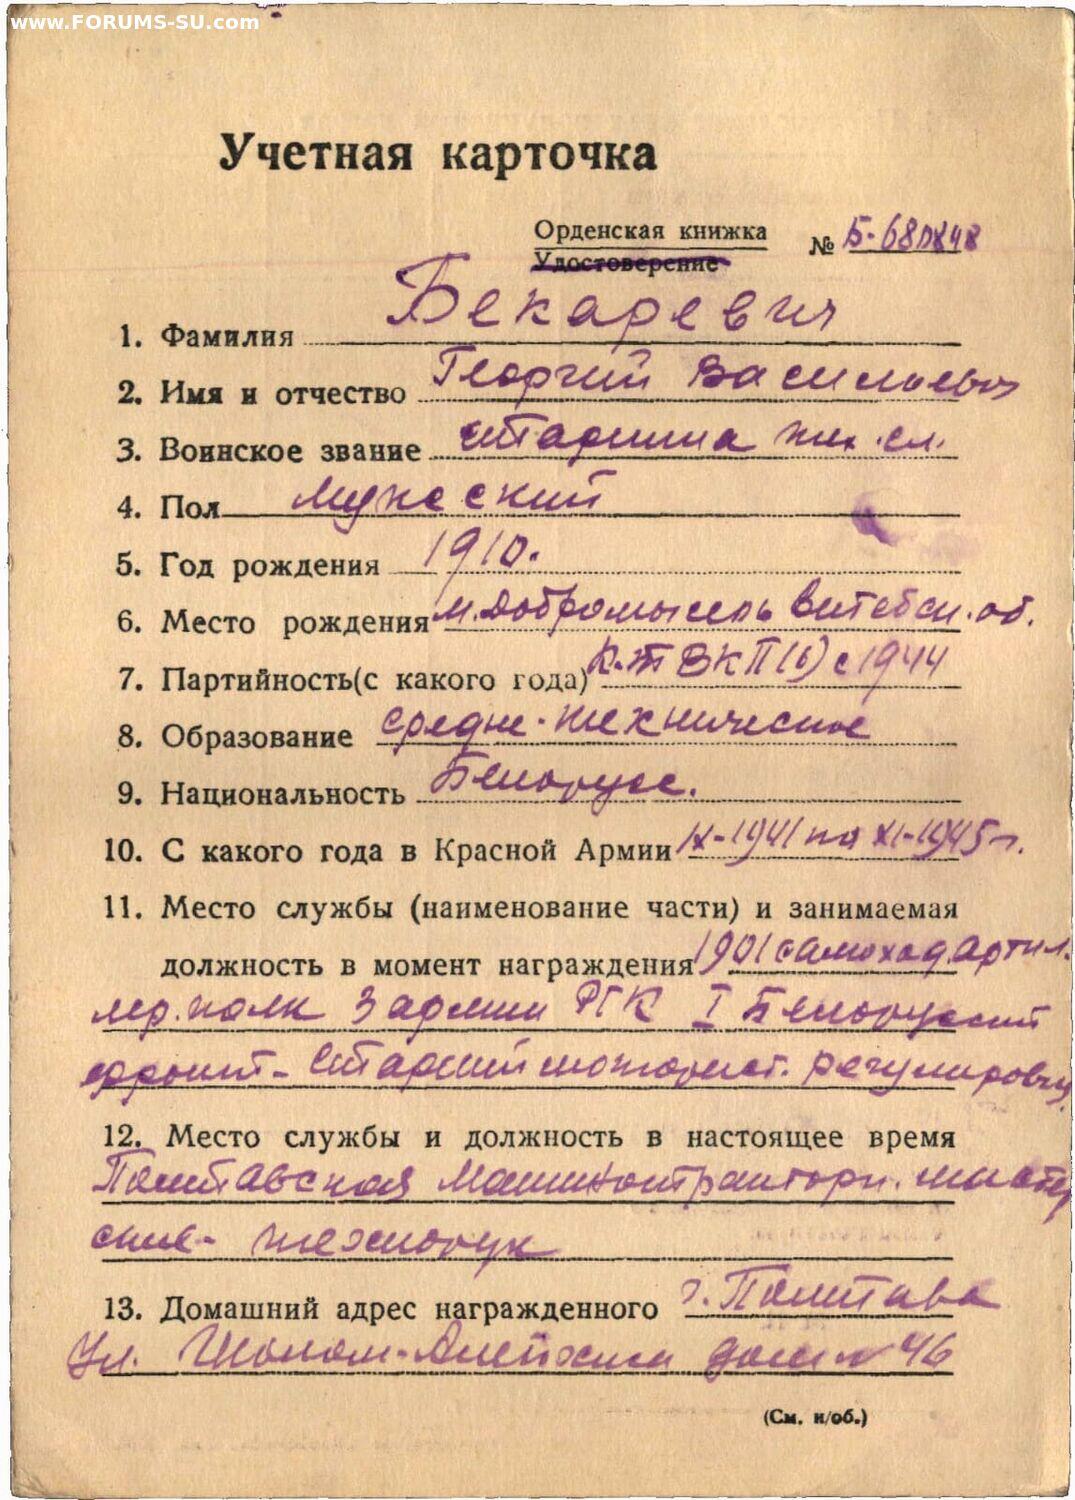 www.FORUMS-SU.com
Учетная карточка
Орденская книжка
Удостоверение
№ Б-
1. Фамилия Бекаревич
2. Имя и отчество Георгий Васильевич
3. Воинское звание старшина тех. сл.
4. Пол мужской
5. Год рождения 1910.
6. Место рождения м. Добромысль Витебск. об.
7. Партийность(с какого года) К.т ВКП(б) с 1944
8. Образование средне-техническое
9. Национальность Белорусс.
10. С какого года в Красной Армии IX-1941 по XI-1945г.
11. Место службы (наименование части) и занимаемая
должность в момент награждения 1901 самоход. артил.
лер. полк 3 армии РГК I Белорусский
фронт- Старший моторист. регулировщ.
12. Место службы и должность в настоящее время
Полтавская Машинотракторн. мастер
ские- техснорук
13. Домашний адрес награжденного г. Полтава
Ул. Шолом-Алейхем дом № 46
(См. н/об.)